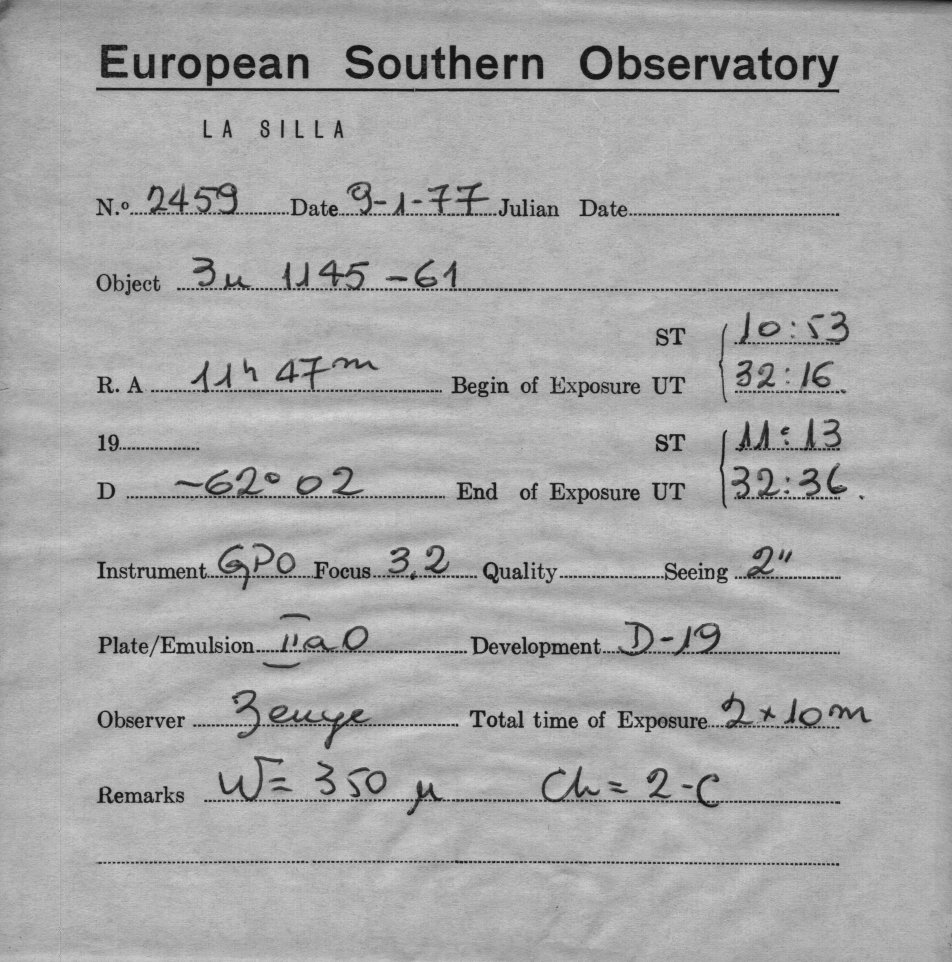 European Southern Observatory
LA SILLA
N.º 2459 Date 9-1-77 Julian Date
Object 3u 1145 -61
ST 10:53
R. A 11h 47m Begin of Exposure UT 32:16
19 ST 11:13
D -62° 02 End of Exposure UT 32:36.
Instrument GPO Focus 3.2 Quality Seeing 2"
Plate/Emulsion IIaO Development D-19
Observer Total time of Exposure 2x10m
Remarks W= 350 µ Ch= 2-C